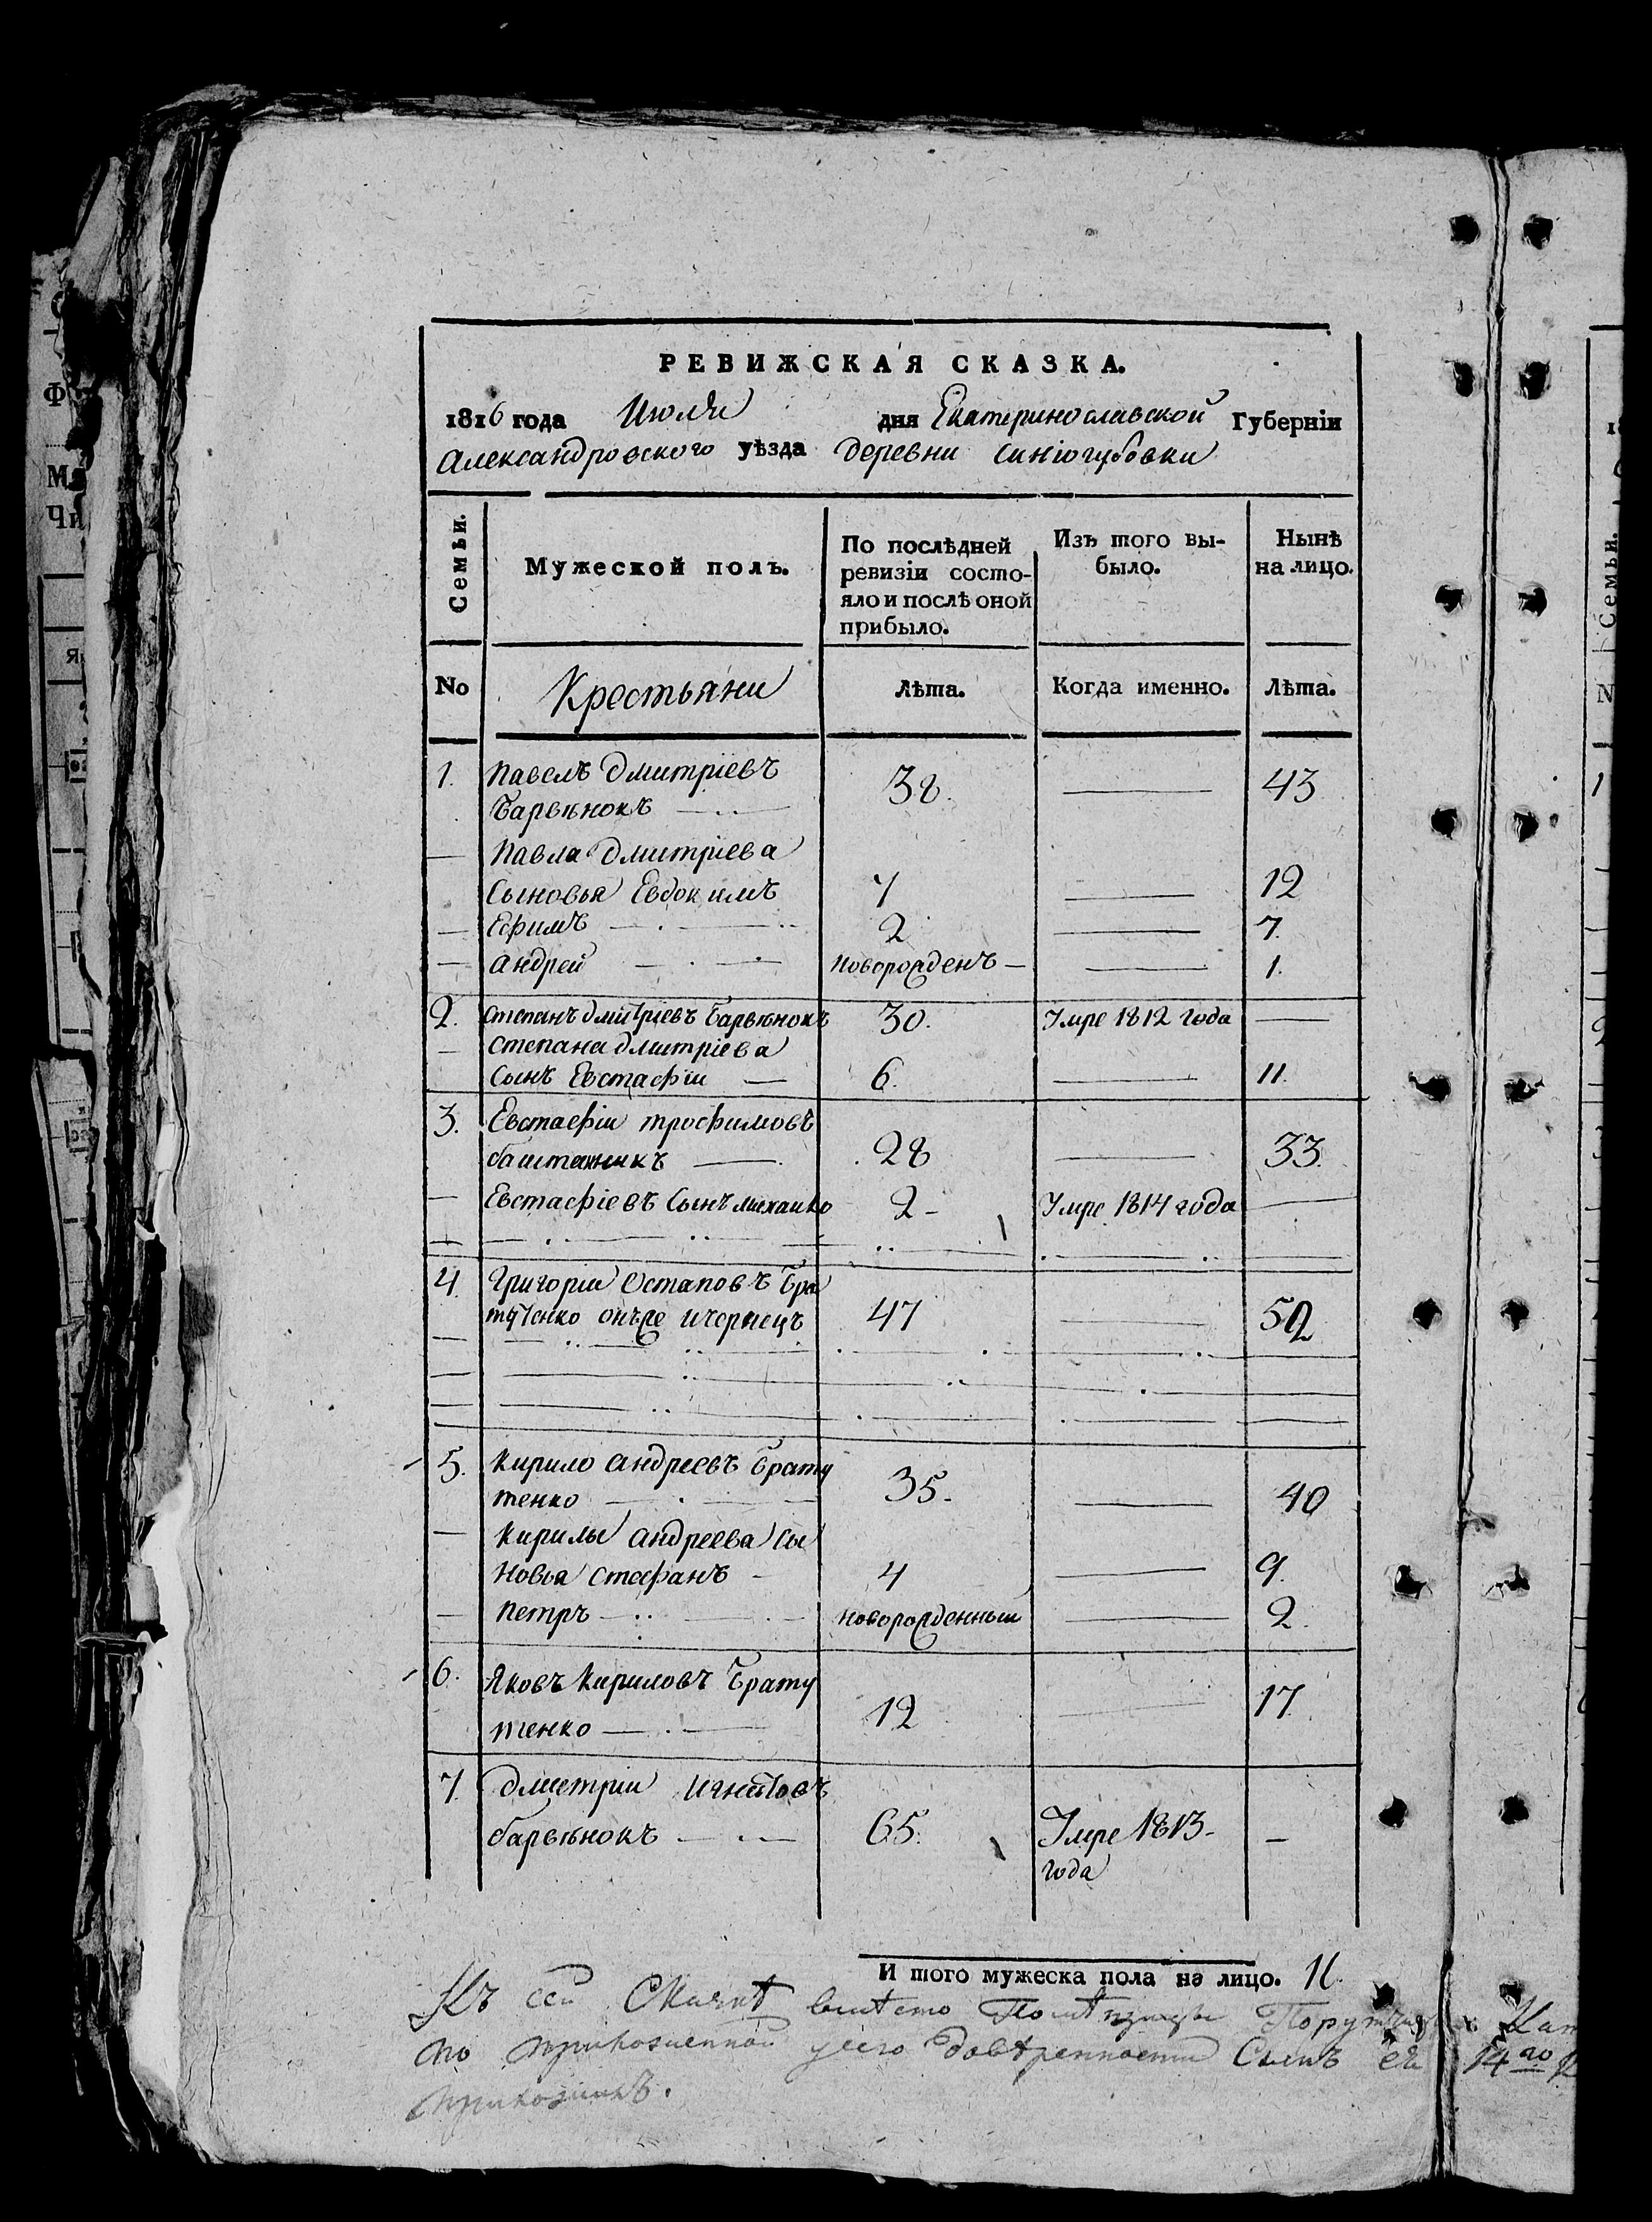 РЕВИЖСКАЯ СКАЗКА.
1816 года Июля дня Екатеринославской Губерніи
Александровского уѣзда деревни Синіогубовки
Семьи.
Мужеской полъ.
По послѣдней ревизіи состо-
яло и послѣ оной
прибыло.
Изъ того вы-
было.
Нынѣ
на лицо.
No Крестьяни Лѣта. Когда именно. Лѣта.
1. Павелъ Дмитріевъ
Барвѣнокъ 38. 43
Павла Дмитріева
Сыновья Евдокимъ 7 12
Ефимъ 2 7.
Андрей новорожденъ 1.
2. Степанъ Дмитріевъ Барвѣнокъ 30. Умре 1812 года
Степана Дмитріева
Сынъ Евстафіи 6. 11.
3. Евстафіи Трофимовъ
баштанникъ 28 33.
Евстафіевъ Сынъ Михаико 2 Умре 1814 года
4. Григоріи Остаповъ Бра
тутенко онъже ичернецъ 47 52
5. Кирило Андреевъ Брату
тенко 35. 40
Кирилы Андреева Сы
новья Стефанъ 4 9.
Петръ новорожденный 2.
6. Яковъ Кириловъ Брату
тенко 12 17.
7. Дмитріи Игнатовъ
барвѣнокъ 65. Умре 1813
года
И того мужеска пола на лицо. 11.
Къ сей Сказкѣ вмѣсто Помѣщицы
по доверенности Сынъ ея 14го